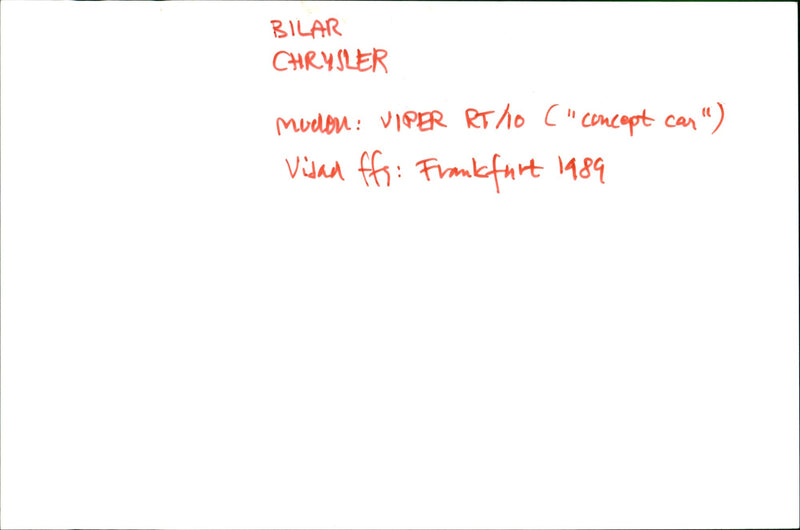 BILAR
CHRYSLER
modell: VIPER RT/10 ("concept car")
Visad ffg: Frankfurt 1989